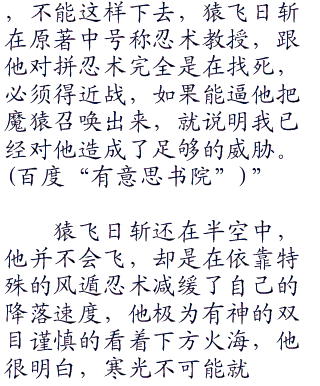 ，不能这样下去，猿飞日斩
在原著中号称忍术教授，跟
他对拼忍术完全是在找死，
必须得近战，如果能逼他把
魔猿召唤出来，就说明我已
经对他造成了足够的威胁。
(百度“有意思书院”)”
猿飞日斩还在半空中，
他并不会飞，却是在依靠特
殊的风遁忍术减缓了自己的
降落速度，他极为有神的双
目谨慎的看着下方火海，他
很明白，寒光不可能就